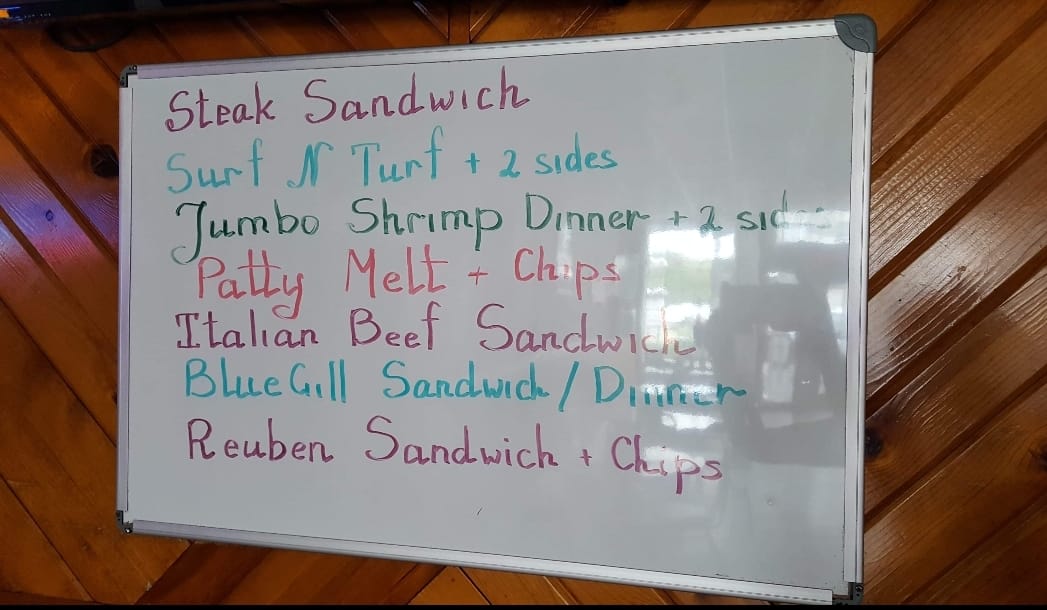 Steak Sandwich
Surf N Turf + 2 sides
Jumbo Shrimp Dinner + 2 sides
Patty Melt + Chips
Italian Beef Sandwich
BlueGill Sandwich / Dinner
Reuben Sandwich + Chips